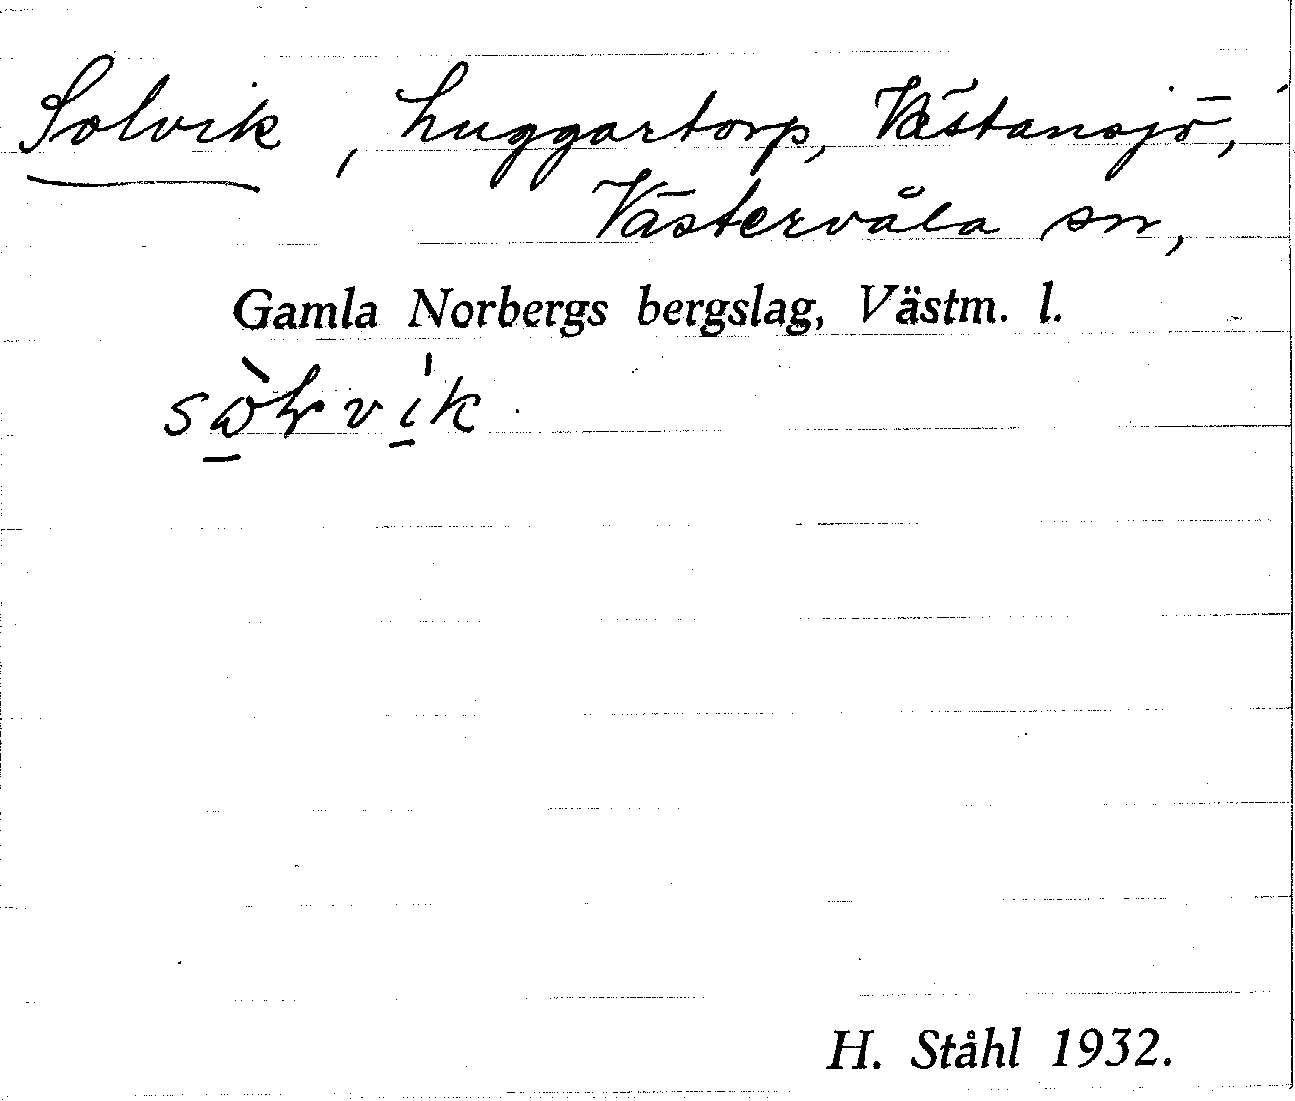 Solvik, Luggartorp, Västansjö,
Västervåla sn,
Gamla Norbergs bergslag, Västm. l.
H. Ståhl 1932.